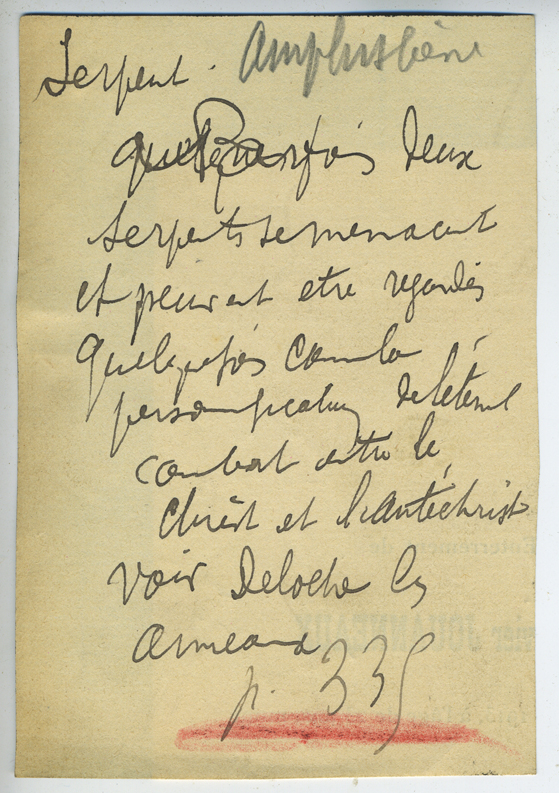 Serpent. Amphisbène
Parfois deux
serpents se menacent
et peuvent etre regardés
quelquefois comme la
personnification de l'éternel
combat entre le
Christ et l'antéchrist
voir Deloche les
anneaux
p. 335